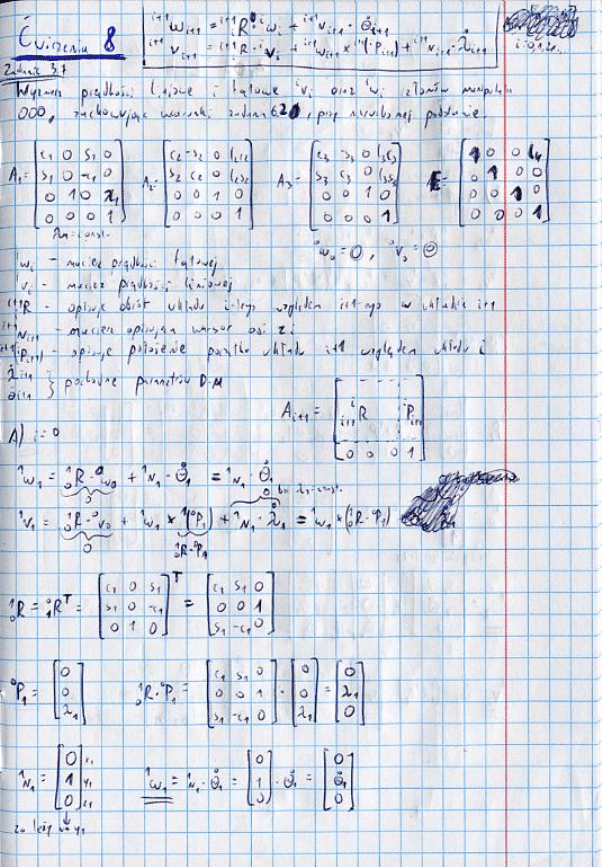 Ćwiczenia 8
ⁱ⁺¹ω_{i+1} = ⁱ⁺¹_iR · ⁱω_i + ⁱ⁺¹N_{i+1} · θ̇_{i+1}
ⁱ⁺¹v_{i+1} = ⁱ⁺¹_iR · ⁱv_i + ⁱ⁺¹ω_{i+1} × ⁱ⁺¹(ⁱP_{i+1}) + ⁱ⁺¹N_{i+1} · λ̇_{i+1}
i=0,1,2...
Zadanie 3.7
Wyznacz prędkości liniowe i kątowe ⁱv_i oraz ⁱω_i członów manipulatora
OOO, zachowując warunki zadania 6.2, przy nieruchomej podstawie.
A₁ = [c₁ 0 s₁ 0; s₁ 0 -c₁ 0; 0 1 0 λ₁; 0 0 0 1] A₂ = [c₂ -s₂ 0 l₂c₂; s₂ c₂ 0 l₂s₂; 0 0 1 0; 0 0 0 1] A₃ = [c₃ -s₃ 0 l₃c₃; s₃ c₃ 0 l₃s₃; 0 0 1 0; 0 0 0 1] E = [1 0 0 l₄; 0 1 0 0; 0 0 1 0; 0 0 0 1]
λ₁ = const.
⁰ω₀ = 0, ⁰v₀ = 0
ⁱω_i - macierz prędkości kątowej
ⁱv_i - macierz prędkości liniowej
ⁱ⁺¹_iR - opisuje obrót układu i-tego względem i+1-ego w układzie i+1
ⁱ⁺¹N_{i+1} - macierz opisująca wersor osi z_i
ⁱ⁺¹(ⁱP_{i+1}) - opisuje położenie początku układu i+1 względem układu i
λ̇_{i+1}
θ̇_{i+1} } pochodne parametrów D-H
A_{i+1} = [ⁱ_{i+1}R ⁱP_{i+1}; 0 0 0 1]
A) i=0
¹ω₁ = ¹₀R · ⁰ω₀ + ¹N₁ · θ̇₁ = ¹N₁ · θ̇₁
0
0 bo λ₁=const.
¹v₁ = ¹₀R · ⁰v₀ + ¹ω₁ × ¹(⁰P₁) + ¹N₁ · λ̇₁ = ¹ω₁ × (¹₀R · ⁰P₁)
0 ¹₀R · ⁰P₁
¹₀R = ⁰₁Rᵀ = [c₁ 0 s₁; s₁ 0 -c₁; 0 1 0]ᵀ = [c₁ s₁ 0; 0 0 1; s₁ -c₁ 0]
⁰P₁ = [0; 0; λ₁] ¹₀R · ⁰P₁ = [c₁ s₁ 0; 0 0 1; s₁ -c₁ 0] · [0; 0; λ₁] = [0; λ₁; 0]
¹N₁ = [0; 1; 0] x₁ y₁ z₁ ¹ω₁ = ¹N₁ · θ̇₁ = [0; 1; 0] · θ̇₁ = [0; θ̇₁; 0]
z₀ leży na y₁